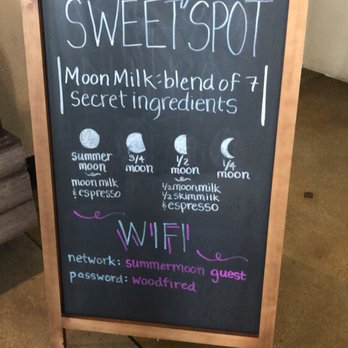 SWEET SPOT
Moon Milk: blend of 7
secret ingredients
summer moon
3/4 moon
1/2 moon
1/4 moon
moon milk & espresso
1/2 moonmilk 1/2 skim milk & espresso
WIFI
network: summermoon guest
password: woodfired